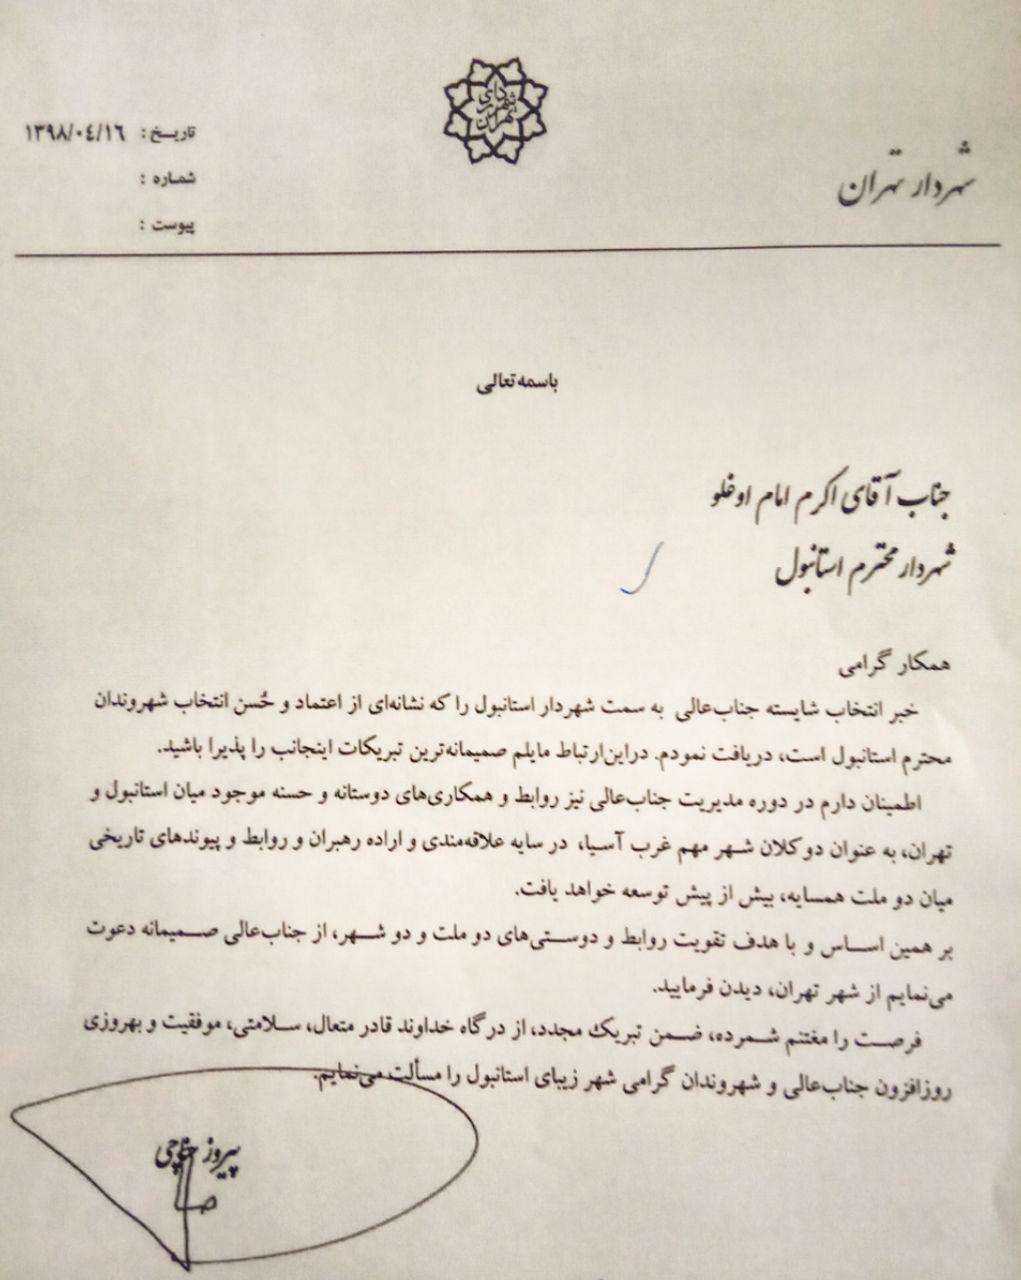 شهرداری تهران
شهردار تهران
تاریخ: ۱۳۹۸/۰٤/۱٦
شماره:
پیوست:
باسمه تعالی
جناب آقای اکرم امام اوغلو
شهردار محترم استانبول
همکار گرامی
خبر انتخاب شایسته جناب‌عالی به سمت شهردار استانبول را که نشانه‌ای از اعتماد و حُسن انتخاب شهروندان
محترم استانبول است، دریافت نمودم. دراین‌ارتباط مایلم صمیمانه‌ترین تبریکات اینجانب را پذیرا باشید.
اطمینان دارم در دوره مدیریت جناب‌عالی نیز روابط و همکاری‌های دوستانه و حسنه موجود میان استانبول و
تهران، به عنوان دو کلان شهر مهم غرب آسیا، در سایه علاقه‌مندی و اراده رهبران و روابط و پیوندهای تاریخی
میان دو ملت همسایه، بیش از پیش توسعه خواهد یافت.
بر همین اساس و با هدف تقویت روابط و دوستی‌های دو ملت و دو شهر، از جناب‌عالی صمیمانه دعوت
می‌نمایم از شهر تهران، دیدن فرمایید.
فرصت را مغتنم شمرده، ضمن تبریک مجدد، از درگاه خداوند قادر متعال، سلامتی، موفقیت و بهروزی
روزافزون جناب‌عالی و شهروندان گرامی شهر زیبای استانبول را مسألت می‌نمایم.
پیروز حناچی